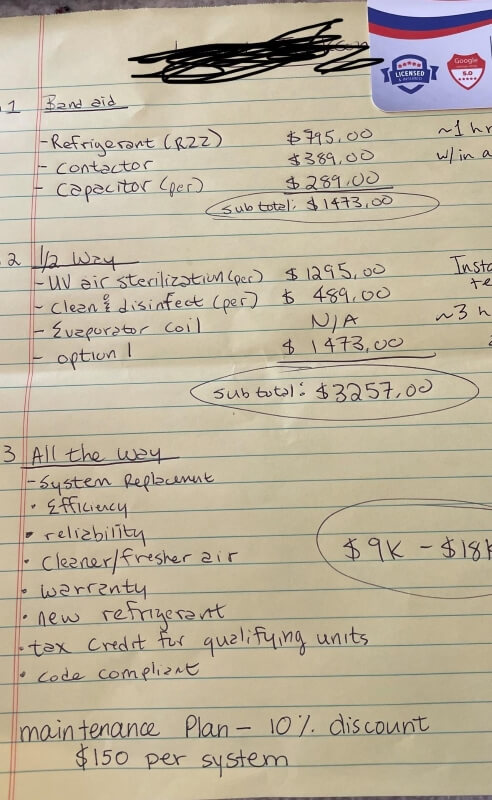 LICENSED
Google
5.0
1 Band aid
- Refrigerant (R22) $795.00 ~1 hr
- contactor $389.00 w/in a
- Capacitor (per) $289.00
Subtotal: $1473.00
2 1/2 Way
- UV air sterilization (per) $1295.00
- Clean & disinfect (per) $ 489.00
- Evaporator coil N/A ~3 h
- option 1 $ 1473.00
Subtotal: $3257.00
3 All the way
- System Replacement
• Efficiency
• reliability
• Cleaner/fresher air
• warranty
• new refrigerant
• tax credit for qualifying units
• code compliant
$9K - $18K
maintenance Plan - 10% discount
$150 per system